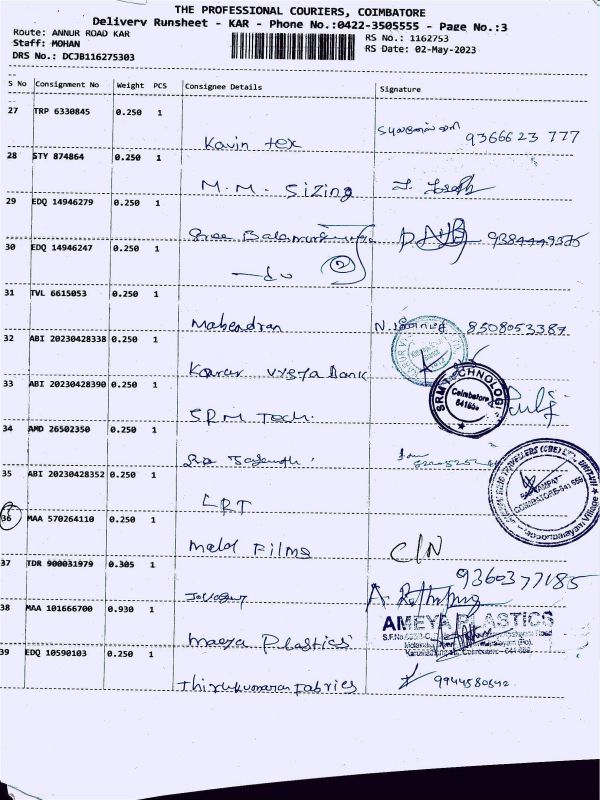 THE PROFESSIONAL COURIERS, COIMBATORE
Delivery Runsheet - KAR - Phone No.:0422-3505555 - Page No.:3
Route: ANNUR ROAD KAR
RS No.: 1162753
Staff: MOHAN
RS Date: 02-May-2023
DRS No.: DCJB116275303
S No Consignment No Weight PCS Consignee Details Signature
27 TRP 6330845 0.250 1
Kavin tex 9366623777
28 STY 874864 0.250 1
M.M. Sizing
29 EDQ 14946279 0.250 1
Sree
30 EDQ 14946247 0.250 1
—do 2
31 TVL 6615053 0.250 1
Mahendran 8508053387
32 ABI 20230428338 0.250 1
Karur Vysya Bank
33 ABI 20230428390 0.250 1
SRM TECHNOLOG
Coimbatore
SRM Tech.
34 AMD 26502350 0.250 1
35 ABI 20230428352 0.250 1
COIMBATORE-641 659
LRT
36 MAA 570264110 0.250 1
Meld Films C/N
37 TDR 900031979 0.305 1
9360377185
38 MAA 101666700 0.930 1
AMEYA PLASTICS
Maeya Plastics
39 EDQ 10590103 0.250 1
Thirukumaran Fabrics 9944580842